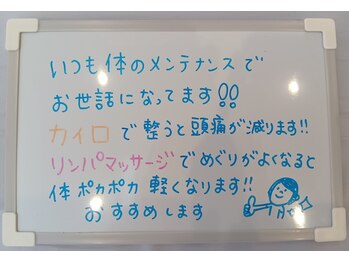 いつも体のメンテナンスで
お世話になってます!!
カイロで整うと頭痛が減ります!!
リンパマッサージでめぐりがよくなると
体ポカポカ軽くなります!!
おすすめします